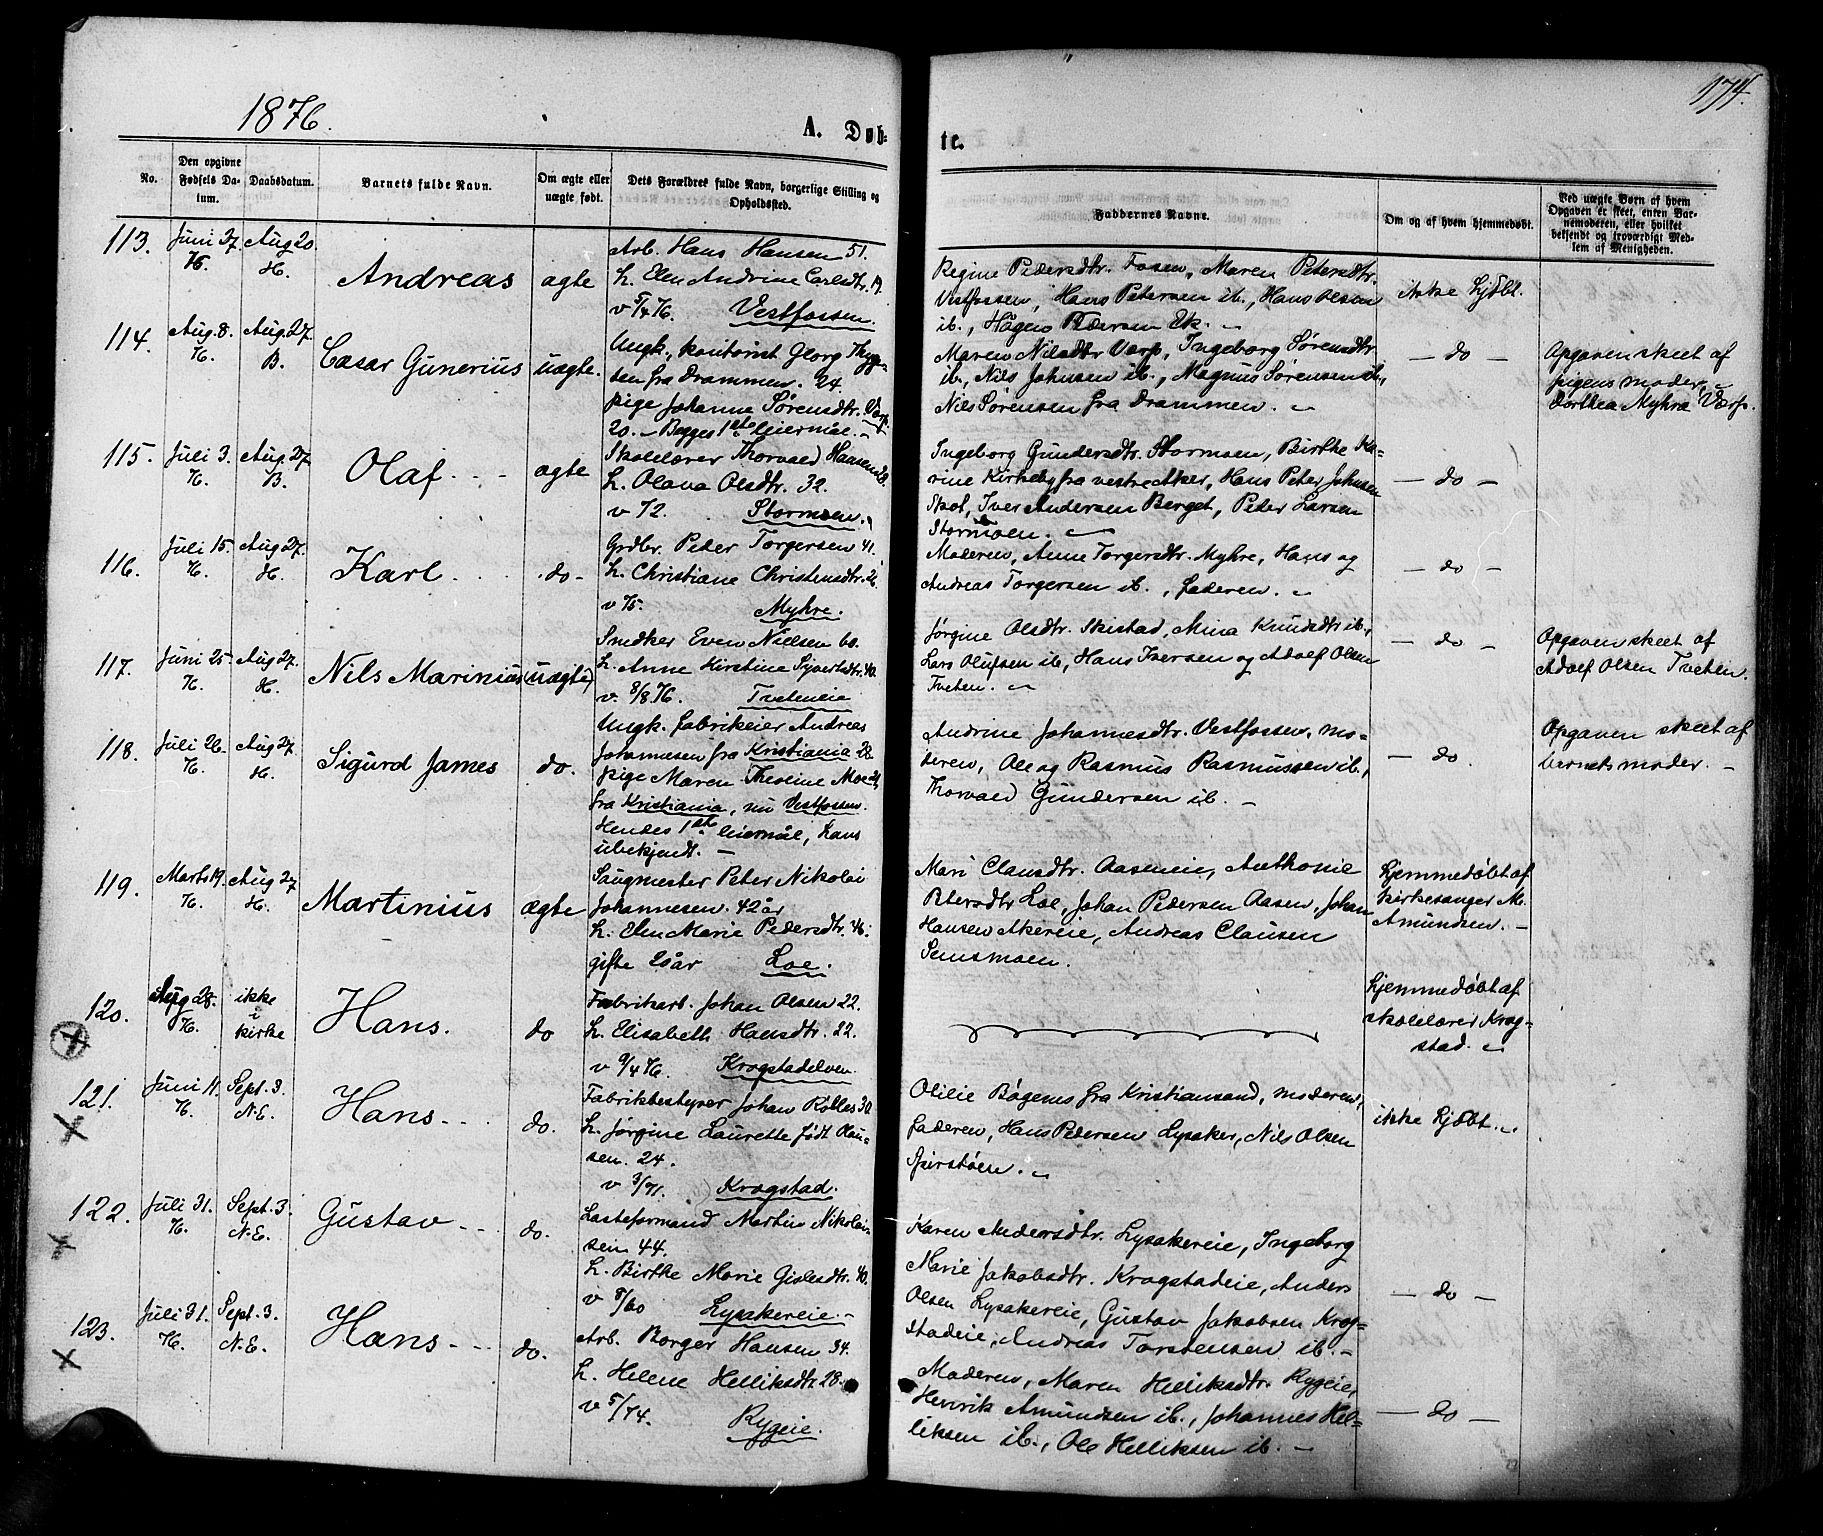 1876.
174.
A. Døb-
te.
No.
Den opgivne Fødsels Datum.
Daabsdatum.
Barnets fulde Navn.
Om ægte eller uægte født.
Dets Forældres fulde Navn, borgerlige Stilling og Opholdssted.
Faddernes Navne.
Om og af hvem hjemmedøbt.
Ved uægte Børn af hvem Opgaven er skeet, enten Barnemoderen, eller hvilket bekjendt og troværdigt Medlem af Menigheden.
113.
Juni 27. 76.
Aug 20. H.
Andreas
ægte
Arb. Hans Hansen 51.
h. Elen Andrine Carlsdtr. 19.
v 5/4 76. Vestfossen.
Regine Pedersdtr. Fosen, Maren Petersdtr.
Vestfossen, Hans Petersen ib., Hans Olsen
ib., Hågen Pedersen Ek.
ikke hjdbt.
114.
Aug. 8. 76.
Aug. 27. B.
Cæsar Gunerius
uægte.
Ungk., kontorist Georg Thyge-
sen fra Drammen. 24.
pige Johanne Sørensdtr. Værp
20. – Begges 1ste leiermål. –
Maren Nilsdtr Værp, Ingeborg Sørensdtr.
ib., Nils Johnsen ib., Magnus Sørensen ib.,
Nils Sørensen fra Drammen.
– do –
Opgaven skeet af
pigens moder,
Dorthea Myhre Værp.
115.
Juli 3. 76.
Aug. 27. B.
Olaf.
ægte
Skolelærer Thorvald Hansen 28.
h. Olava Olsdtr. 32.
v 72. Stormoen.
Ingeborg Gundersdtr. Stormoen, Birthe Ka-
rine Kirkeby fra vestre Aker, Hans Peter Johnsen
Skot, Iver Andersen Berget, Peder Larsen
Stormoen.
– do –
116.
Juli 15. 76.
Aug 27. H.
Karl.
do –
Grdbr. Peder Torgersen 41.
h. Christiane Christensdtr. 26
v 75. Myhre.
Moderen, Anne Torgersdtr. Myhre, Hans og
Andreas Torgersen ib., faderen.
– do –
117.
Juni 25. 76.
Aug 27. H.
Nils Marinius
(uægte)
Snedker Even Nielsen 60.
h. Anne Kirstine Syversdtr. 40.
v. 8/8 76. Tveteneie
Jørgine Olsdtr. Skistad, Mina Knudsdtr ib.,
Lars Olufsen ib., Hans Iversen og Adolf Olsen
Tveten.
– do –
Opgaven skeet af
Adolf Olsen Tveten.
118.
Juli 26. 76.
Aug 27. H.
Sigurd James
do.
Ungk. fabrikeier Andreas
Johannesen fra Kristiania 28
pige Maren Theoline Moe 21,
fra Kristiania, nu Vestfossen.
Hendes 1ste leiermål, hans
ubekjendt. –
Andrine Johannesdtr. Vestfossen, mo-
deren, Ole og Rasmus Rasmussen ib.,
Thorvald Gundersen ib. –
– do.
Opgaven skeet af
barnets moder. –
119.
Marts 19. 76.
Aug 27. H.
Martinius
ægte
Saugmester Peter Nikolai
Johannesen. 42 år
h. Elen Marie Pedersdtr. 46.
gifte 20 år Loe.
Mari Clausdtr. Aaseneie, Anthonie
Petersdtr Loe, Johan Pedersen Aasen, Johan
Hansen Akereie, Andreas Clausen
Semsmoen.
hjemmedøbt af
kirkesanger M.
Amundsen. –
120.
Aug 28. 76.
ikke i kirke
Hans.
do
Fabrikarb. Johan Olsen 22.
h. Elisabeth Hansdtr. 22.
v 9/4 76. Krogstadelven.
hjemmedøbt af
skolelærer Krog-
stad.
121.
Juni 11. 76.
Sept. 3. N.E.
Hans.
do.
Fabrikbestyrer Johan Rolles 30
h. Jørgine Laurette født Clau-
sen. 24.
v 3/71. Krogstad.
Olilie Bøgems fra Kristiansand, moderen,
faderen, Hans Pedersen Lysaker, Nils Olsen
Spirstøen.
ikke hjdbt.
122.
Juli 31. 76.
Sept. 3. N.E.
Gustav
do.
Lasteformand Martin Nikolai-
sen 44.
h. Birthe Marie Gislesdtr. 40.
v 5/60 Lysakereie. –
Karen Andersdtr. Lysakereie, Ingeborg
Marie Jakobsdtr. Krogstadeie, Anders
Olsen Lysakereie, Gustav Jakobsen Krog-
stadeie, Andreas Torstensen ib. –
– do –
123.
Juli 31. 76.
Sept. 3. N.E.
Hans
do.
Arb. Borger Hansen 34.
h. Helene Helliksdtr 28.
v 5/74. Rygeie.
Moderen, Maren Helliksdtr. Rygeie,
Henrik Amundsen ib., Johannes Hel-
liksen ib., Ole Helliksen ib. –
– do –